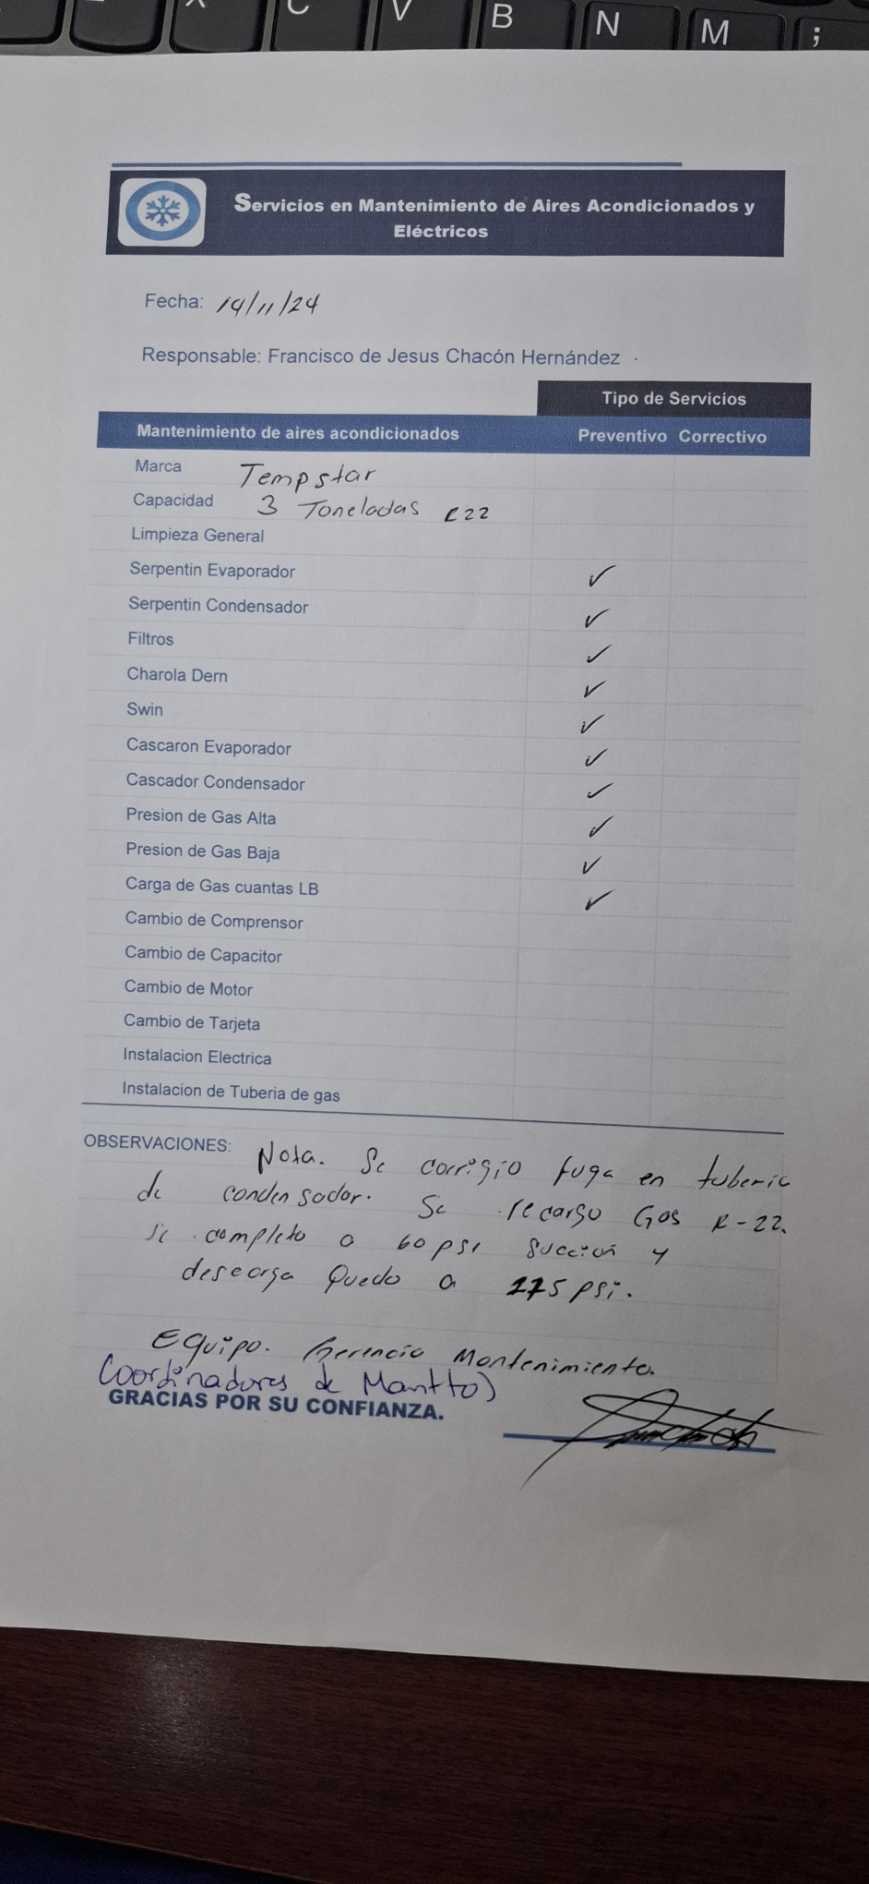 C V B N M ;
Servicios en Mantenimiento de Aires Acondicionados y
Eléctricos
Fecha: 14/11/24
Responsable: Francisco de Jesus Chacón Hernández
Tipo de Servicios
Mantenimiento de aires acondicionados Preventivo Correctivo
Marca Tempstar
Capacidad 3 Toneladas R22
Limpieza General
Serpentin Evaporador ✓
Serpentin Condensador ✓
Filtros ✓
Charola Dern ✓
Swin ✓
Cascaron Evaporador ✓
Cascador Condensador ✓
Presion de Gas Alta ✓
Presion de Gas Baja ✓
Carga de Gas cuantas LB ✓
Cambio de Comprensor
Cambio de Capacitor
Cambio de Motor
Cambio de Tarjeta
Instalacion Electrica
Instalacion de Tuberia de gas
OBSERVACIONES: Nota. Se corrigio fuga en tuberia
de condensador. Se recargo Gas R-22.
se completo a 60 psi succion y
descarga Quedo a 275 psi.
Equipo. Gerencia Mantenimiento.
Coordinadores de Mantto)
GRACIAS POR SU CONFIANZA.